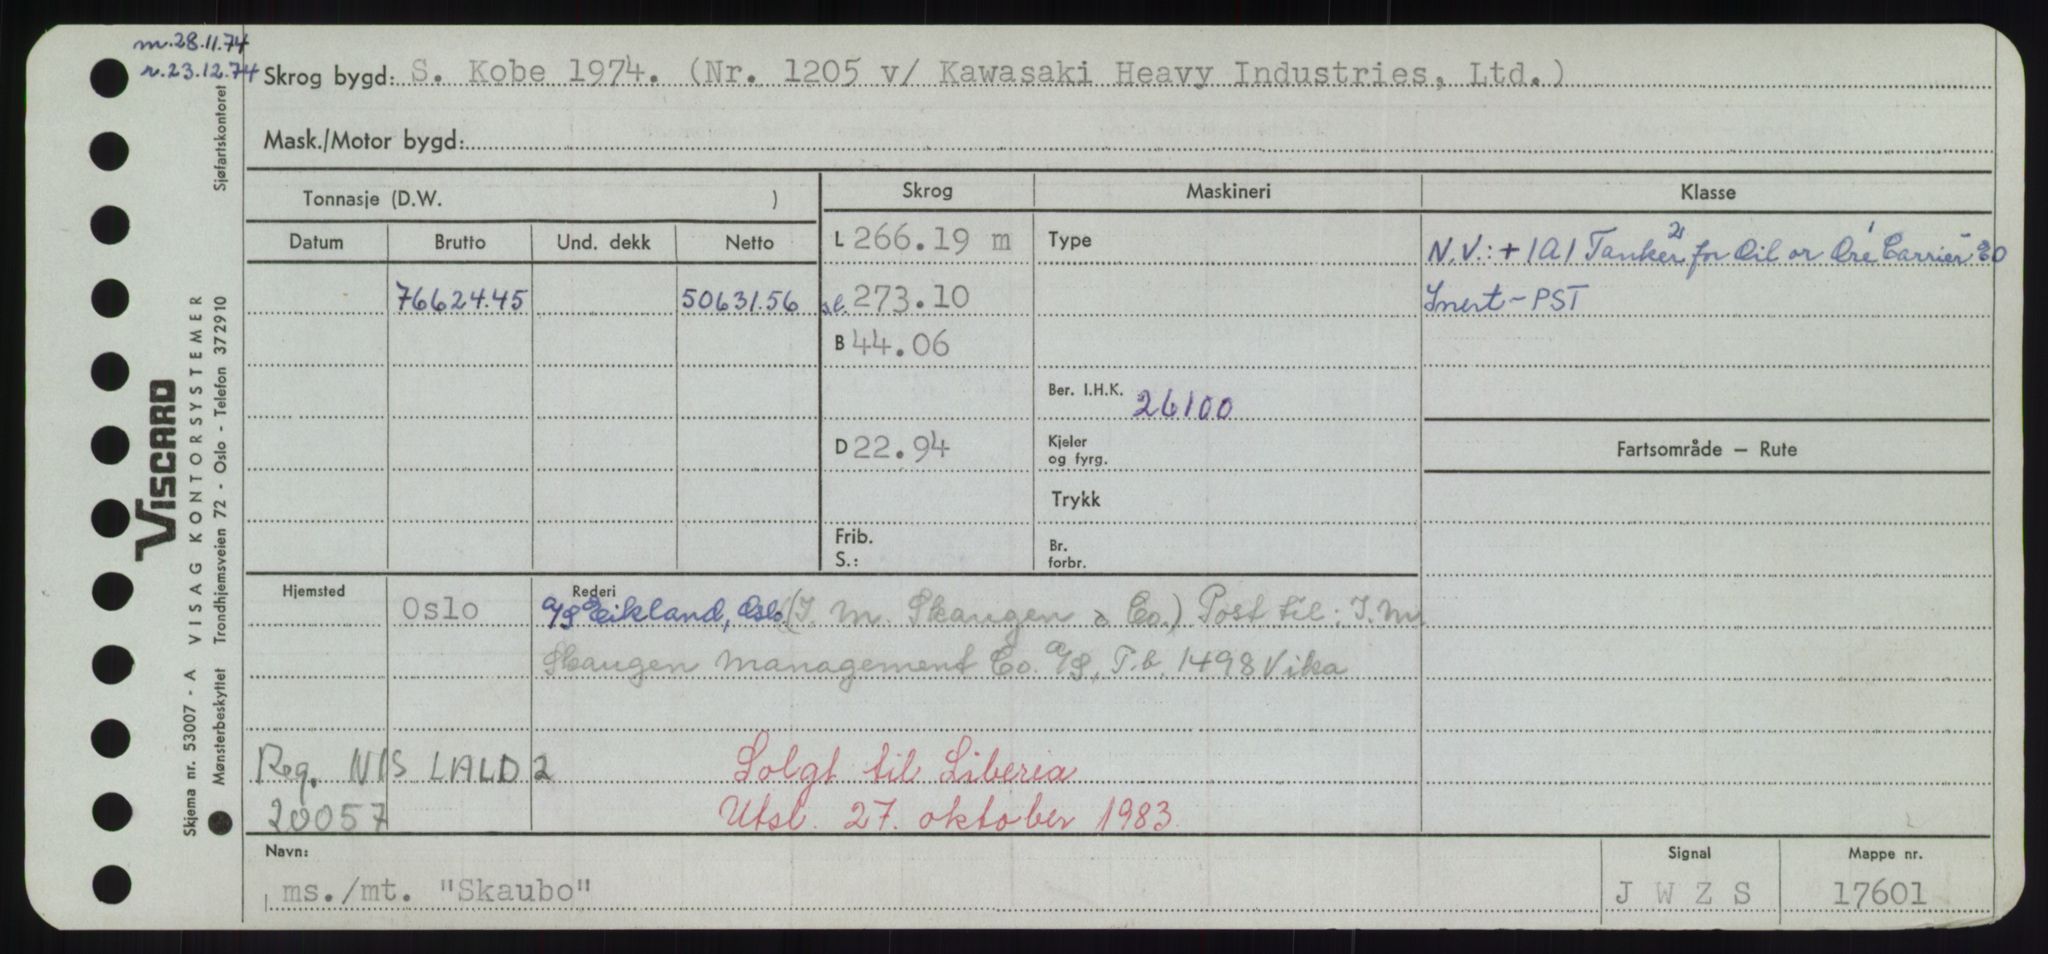 m.28.11.74
r.23.12.74 Skrog bygd: S. Kobe 1974. (Nr. 1205 v/ Kawasaki Heavy Industries, Ltd.)
Mask./Motor bygd:
Tonnasje (D.W. ) Skrog Maskineri Klasse
Datum Brutto Und. dekk Netto L 266.19 m Type N.V.: + 1A1 Tanker for Oil or Ore Carrier
76624.45 50631.56 sl. 273.10 Inert-PST
B 44.06
Ber. I.H.K. 26100
D 22.94 Kjeler og fyrg. Fartsområde – Rute
Trykk
Frib. S.: Br. forbr.
Hjemsted Rederi
Oslo A/S Eikland, Oslo (I. M. Skaugen & Co.) Post til: I.M.
Skaugen Management Co. A/S, P.b. 1498 Vika
Reg. NIS LALD2 Solgt til Liberia
20057 Utsl. 27. oktober 1983.
Navn: Signal Mappe nr.
ms./mt. "Skaubo" J W Z S 17601
Skjema nr. 53007 - A VISAG KONTORSYSTEMER
VISCARD
Mønsterbeskyttet Trondhjemsveien 72 - Oslo - Telefon 372910 Sjøfartskontoret